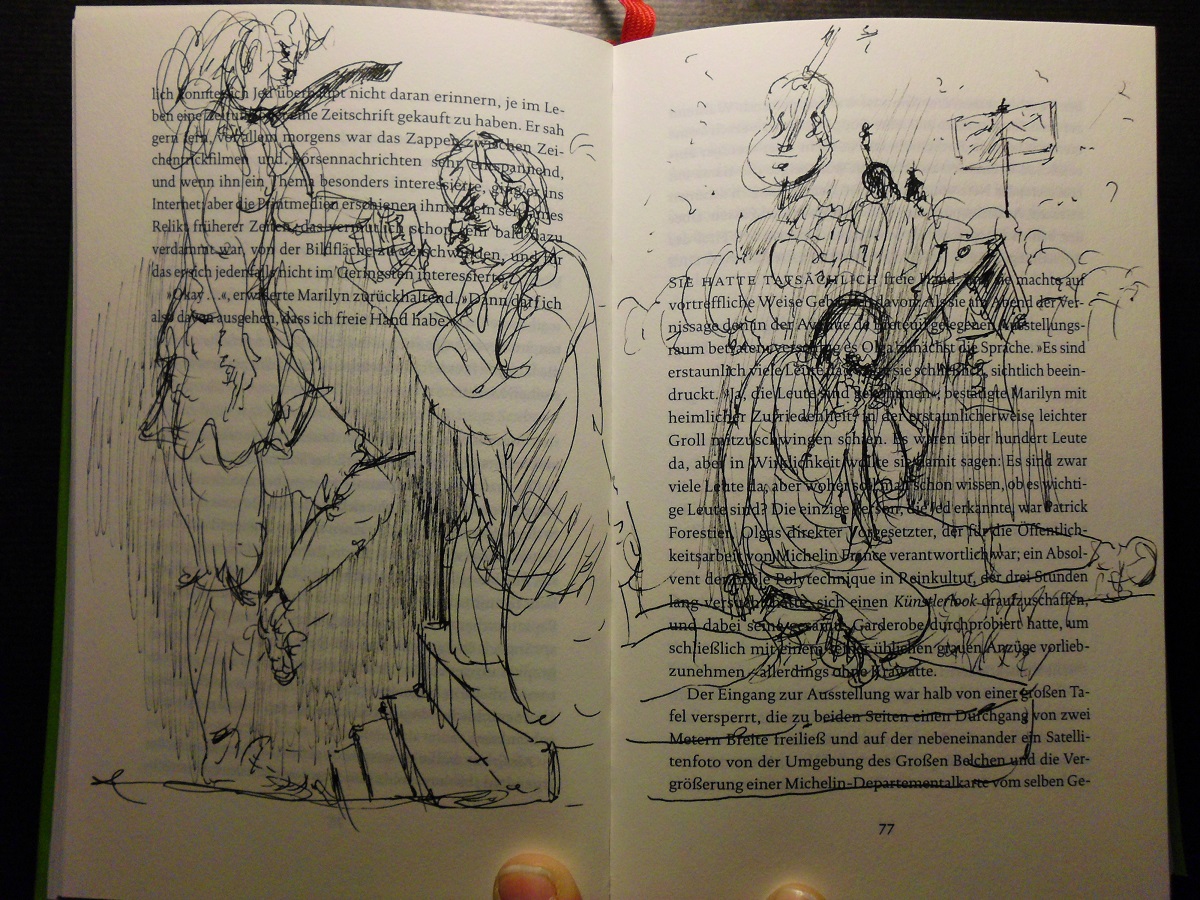 lich konnte sich Jed überhaupt nicht daran erinnern, je im Le-
ben eine Zeitung oder eine Zeitschrift gekauft zu haben. Er sah
gern fern, vor allem morgens war das Zappen zwischen Zei-
chentrickfilmen und Börsennachrichten sehr entspannend,
und wenn ihn ein Thema besonders interessierte, ging er ins
Internet; aber die Printmedien erschienen ihm ein seltsames
Relikt früherer Zeiten, das vermutlich schon sehr bald dazu
verdammt war, von der Bildfläche zu verschwinden, und für
das er sich jedenfalls nicht im Geringsten interessierte.
»Okay ...«, erwiderte Marilyn zurückhaltend. »Dann darf ich
also davon ausgehen, dass ich freie Hand habe.«
SIE HATTE TATSÄCHLICH freie Hand, und sie machte auf
vortreffliche Weise Gebrauch davon. Als sie am Abend der Ver-
nissage den in der Avenue de Breteuil gelegenen Ausstellungs-
raum betraten, verschlug es Olga zunächst die Sprache. »Es sind
erstaunlich viele Leute da«, sagte sie schließlich, sichtlich beein-
druckt. »Ja, die Leute sind gekommen«, bestätigte Marilyn mit
heimlicher Zufriedenheit, in der erstaunlicherweise leichter
Groll mitzuschwingen schien. Es waren über hundert Leute
da, aber in Wirklichkeit wollte sie damit sagen: Es sind zwar
viele Leute da, aber woher soll man schon wissen, ob es wichti-
ge Leute sind? Die einzige Person, die Jed erkannte, war Patrick
Forestier, Olgas direkter Vorgesetzter, der für die Öffentlich-
keitsarbeit von Michelin France verantwortlich war; ein Absol-
vent der École Polytechnique in Reinkultur, der drei Stunden
lang versucht hatte, sich einen Künstlerlook draufzuschaffen,
und dabei seine gesamte Garderobe durchprobiert hatte, um
schließlich mit einem seiner üblichen grauen Anzüge vorlieb-
zunehmen – allerdings ohne Krawatte.
Der Eingang zur Ausstellung war halb von einer großen Ta-
fel versperrt, die zu beiden Seiten einen Durchgang von zwei
Metern Breite freiließ und auf der nebeneinander ein Satelli-
tenfoto von der Umgebung des Großen Belchen und die Ver-
größerung einer Michelin-Departementalkarte vom selben Ge-
77